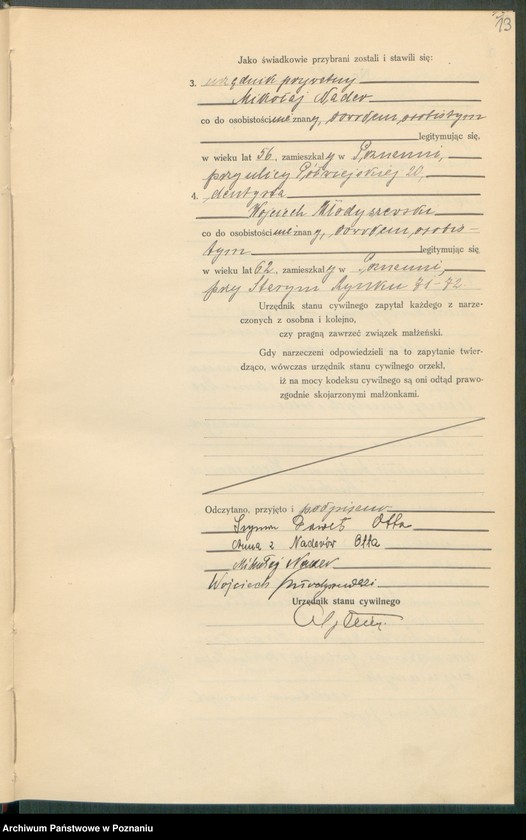 13
Jako świadkowie przybrani zostali i stawili się:
3. urzędnik prywatny
Mikołaj Nader
co do osobistości nie znany, dowodem osobistym
legitymując się,
w wieku lat 56, zamieszkały w Poznaniu,
przy ulicy Półwiejskiej 20,
4. dentysta
Wojciech Młodyszewski
co do osobistości nie znany, dowodem osobis-
tym legitymując się
w wieku lat 62, zamieszkały w Poznaniu,
przy Starym Rynku 71-72
Urzędnik stanu cywilnego zapytał każdego z narze-
czonych z osobna i kolejno,
czy pragną zawrzeć związek małżeński.
Gdy narzeczeni odpowiedzieli na to zapytanie twier-
dząco, wówczas urzędnik stanu cywilnego orzekł,
iż na mocy kodeksu cywilnego są oni odtąd prawo-
zgodnie skojarzonymi małżonkami.
Odczytano, przyjęto i podpisano
Szymon Paweł Otta
Anna z Naderów Otta
Mikołaj Nader
Wojciech Młodyszewski
Urzędnik stanu cywilnego
Archiwum Państwowe w Poznaniu